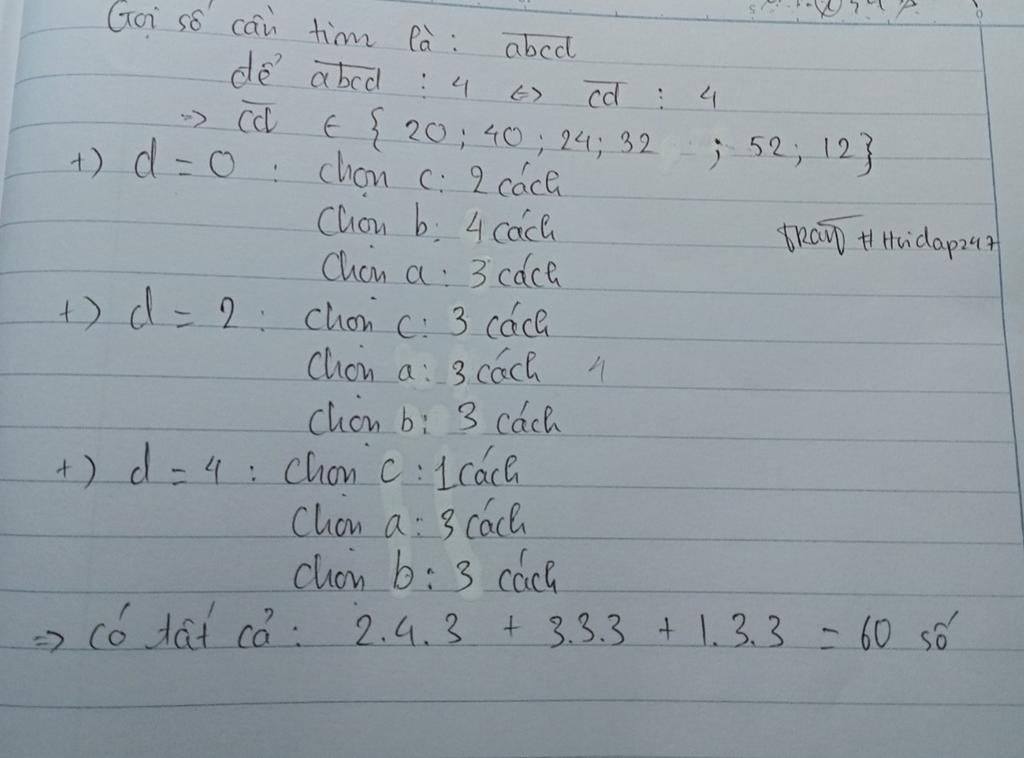 Gọi số cần tìm là : abcd
để abcd ⋮ 4 <=> cd ⋮ 4
=> cd ∈ { 20 ; 40 ; 24 ; 32 ; 52 ; 12 }
+) d = 0 : chọn c : 2 cách
Chọn b : 4 cách
Chọn a : 3 cách
+) d = 2 : chọn c : 3 cách
Chọn a : 3 cách
Chọn b : 3 cách
+) d = 4 : Chọn c : 1 cách
Chọn a : 3 cách
Chọn b : 3 cách
=> có tất cả : 2.4.3 + 3.3.3 + 1.3.3 = 60 số